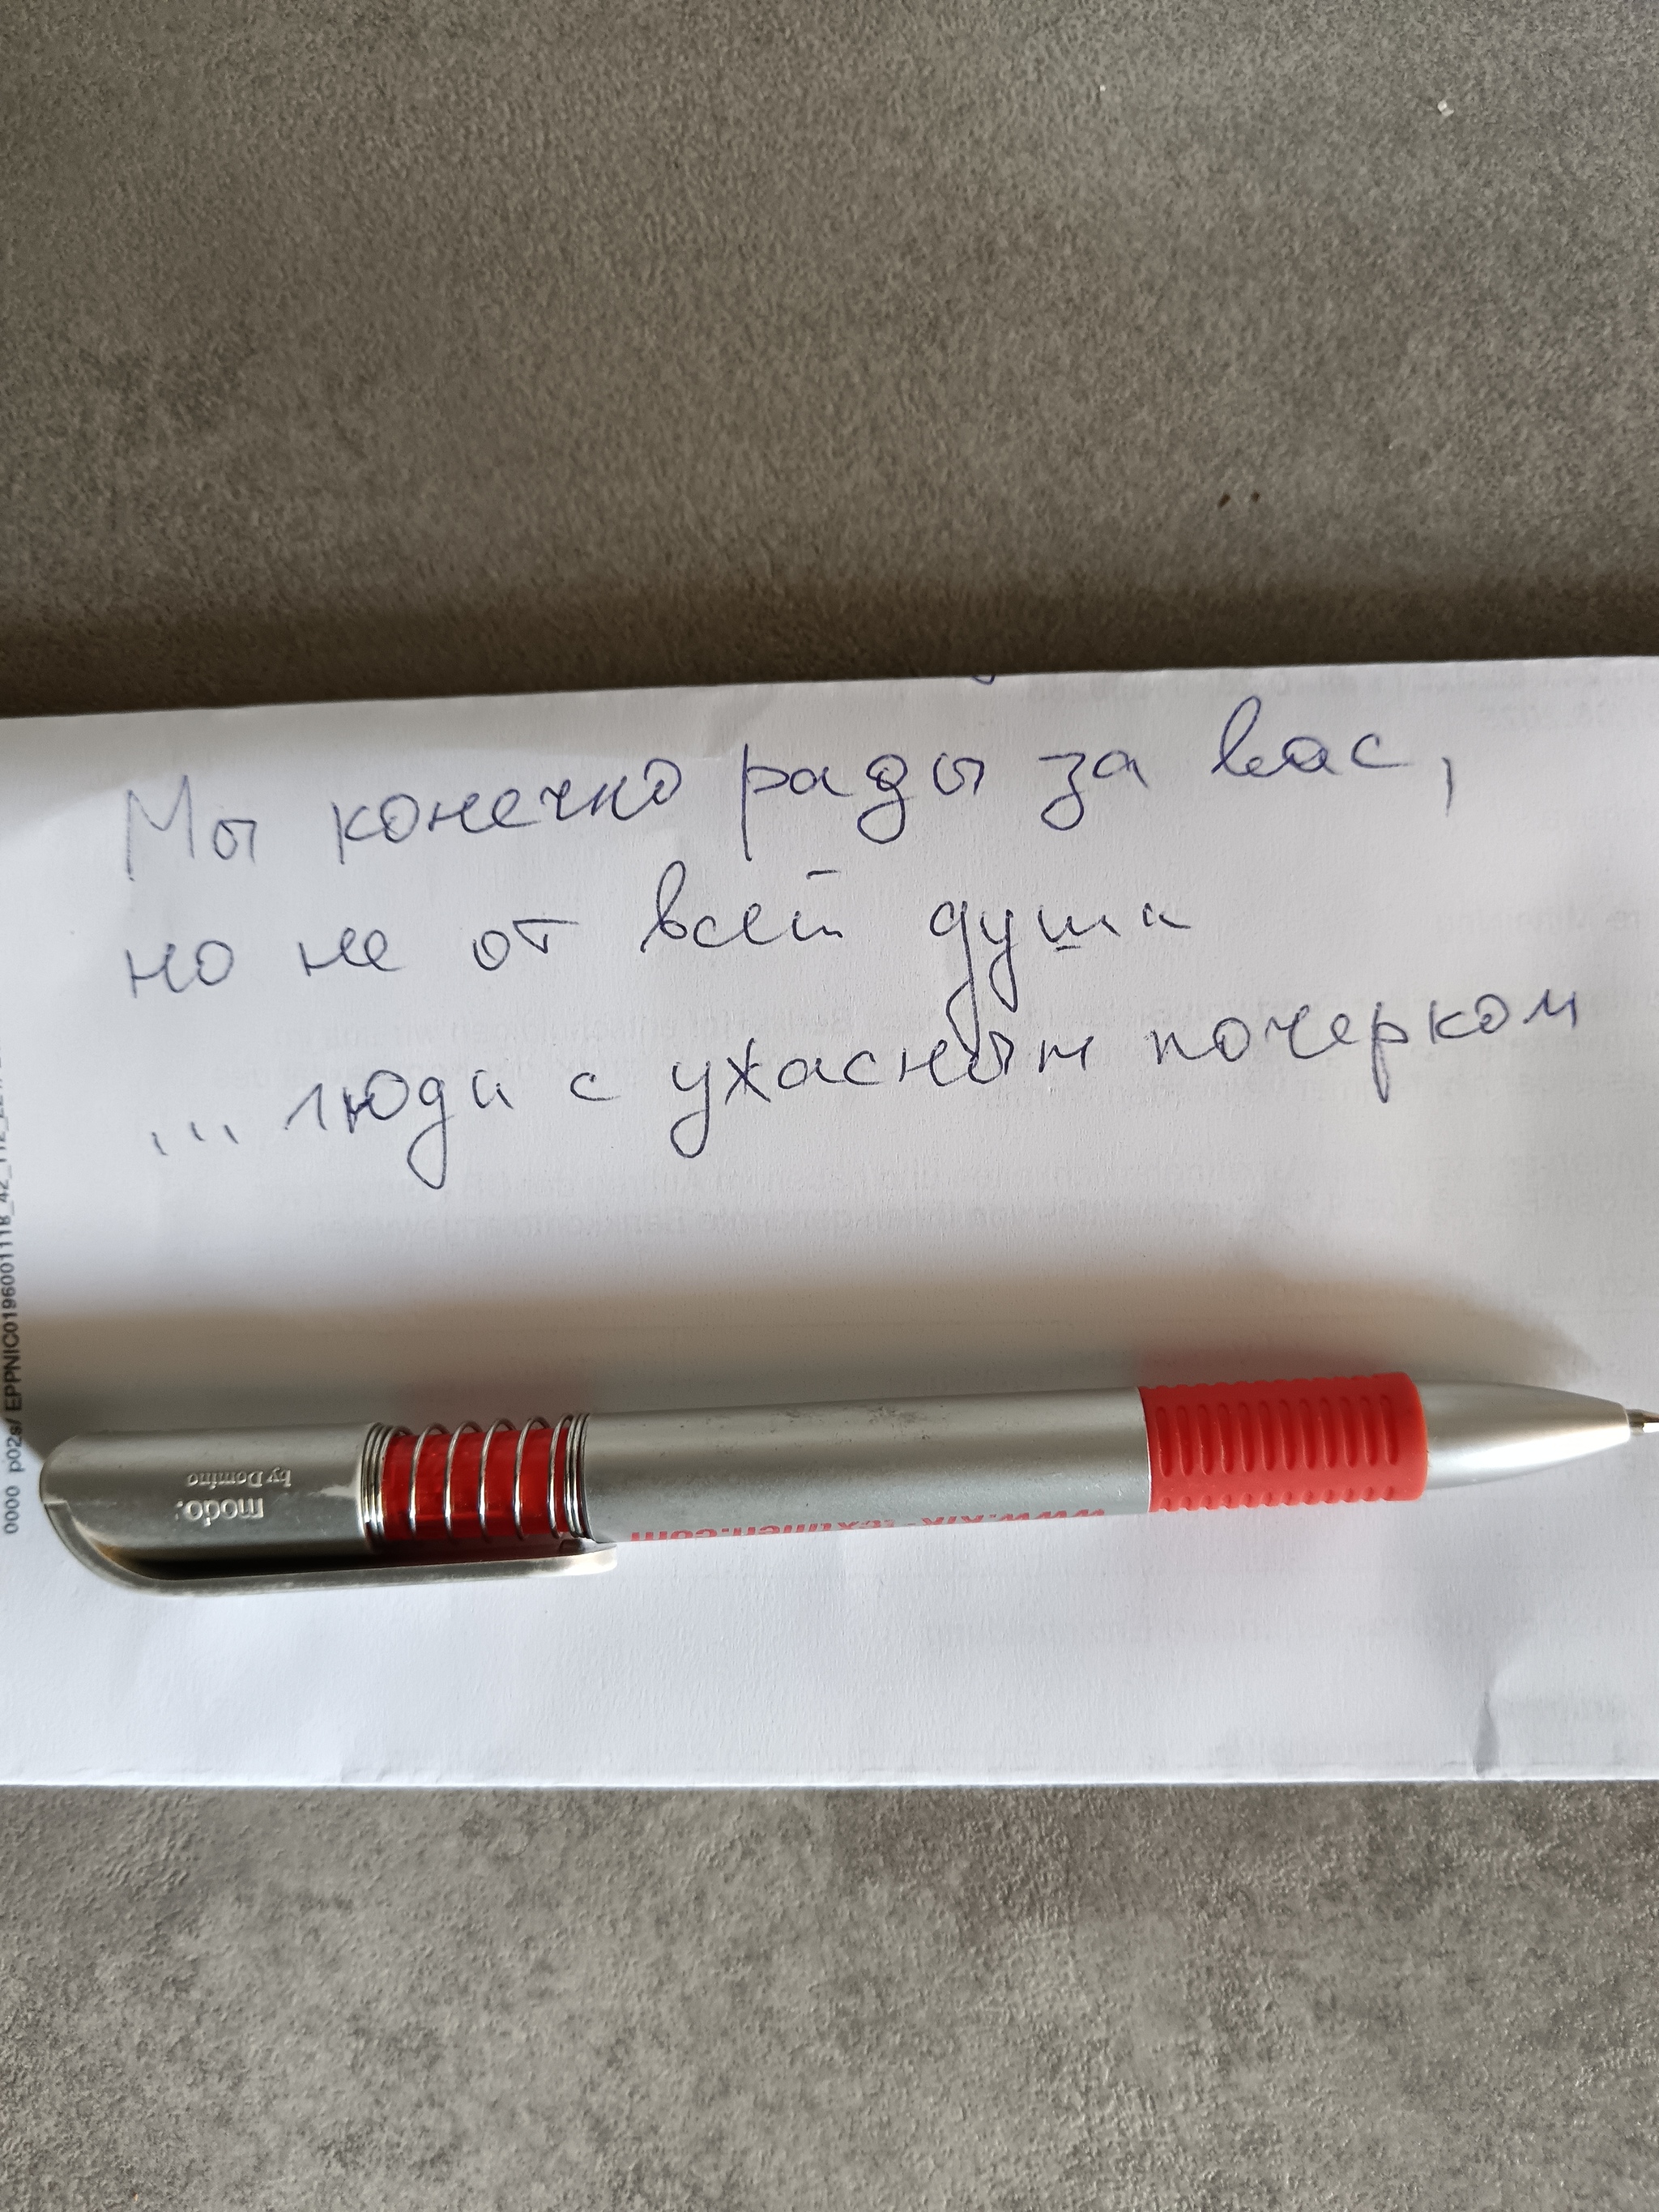 Мы конечно рады за вас,
но не от всей души
... люди с ужасным почерком
0000 p02s/ EPPNIC0196001118_42_112_
modo.
by Domino